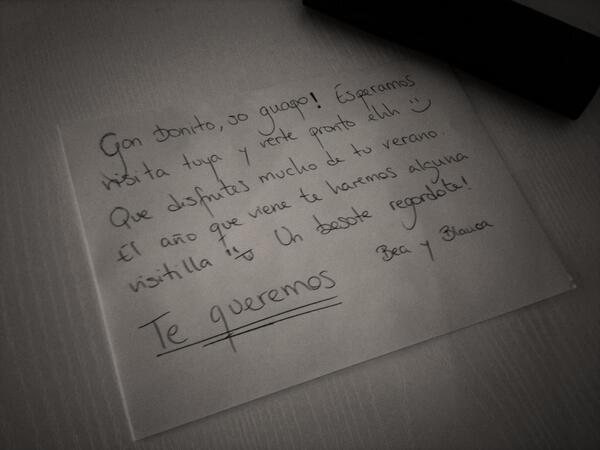 Gon Bonito, so guapo! Esperamos
visita tuya y verte pronto ehh :)
Que disfrutes mucho de tu verano.
El año que viene te haremos alguna
visitilla Un besote regordote!
Bea y Blanca
Te queremos